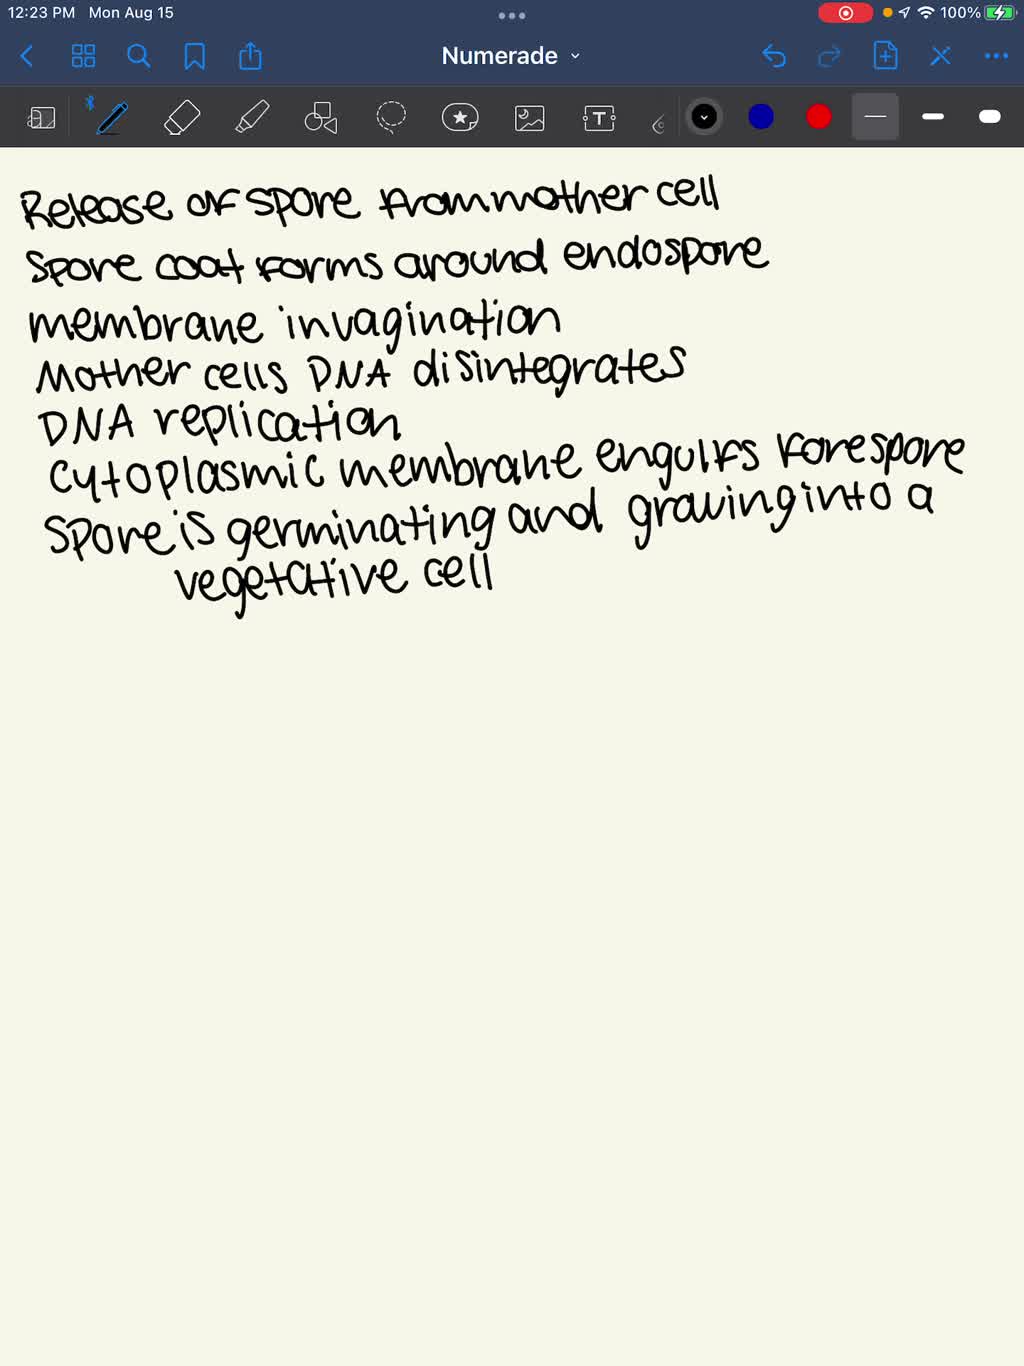 12:23 PM Mon Aug 15 100%
Numerade
T
Release of spore from mother cell
Spore coat forms around endospore
membrane invagination
Mother cells DNA disintegrates
DNA replication
Cytoplasmic membrane engulfs forespore
Spore is germinating and growing into a
vegetative cell